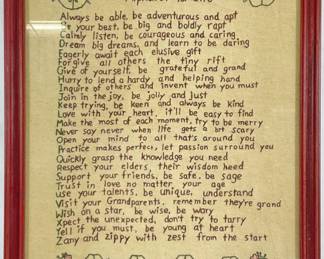 Alphabet for Life
Always be able, be adventurous and apt
Be your best, be big and boldly rapt
Calmly listen, be courageous and caring
Dream big dreams, and learn to be daring
Eagerly await each elusive gift
Forgive all others the tiny rift
Give of yourself, be grateful and grand
Hurry to lend a hardy, and helping hand
Inquire of others and invent when you must
Join in the joy, be jolly and just
Keep trying, be keen and always be kind
Love with your heart, it'll be easy to find
Make the most of each moment, try to be merry
Never say never when life gets a bit scary
Open your mind to all that's around you
Practice makes perfect, let passion surround you
Quickly grasp the knowledge you need
Respect your elders, their wisdom heed
Support your friends, be safe, be sage
Trust in love no matter your age
Use your talents, be unique, understand
Visit your Grandparents, remember they're grand
Wish on a star, be wise, be wary
Xpect the unexpected, don't try to tarry
Yell if you must, be young at heart
Zany and zippy with zest from the start